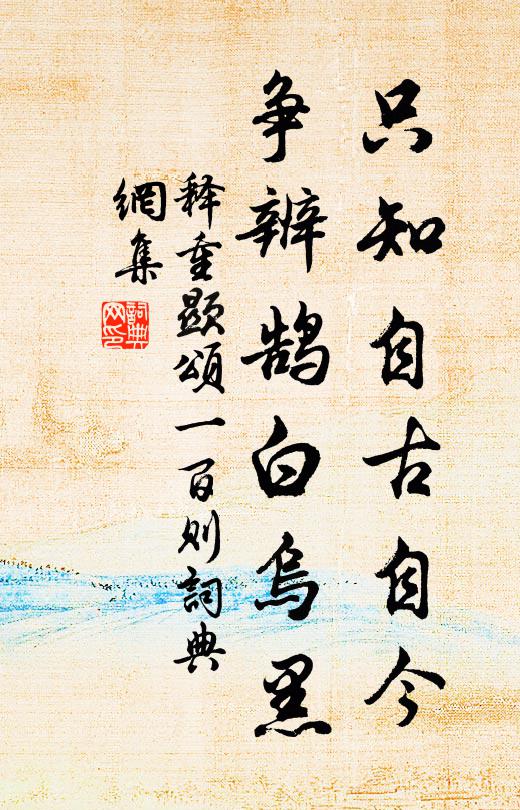 只知自古自今
争辨鹄白乌黑
释重顯頌一百则詞典
網集
詞典网印